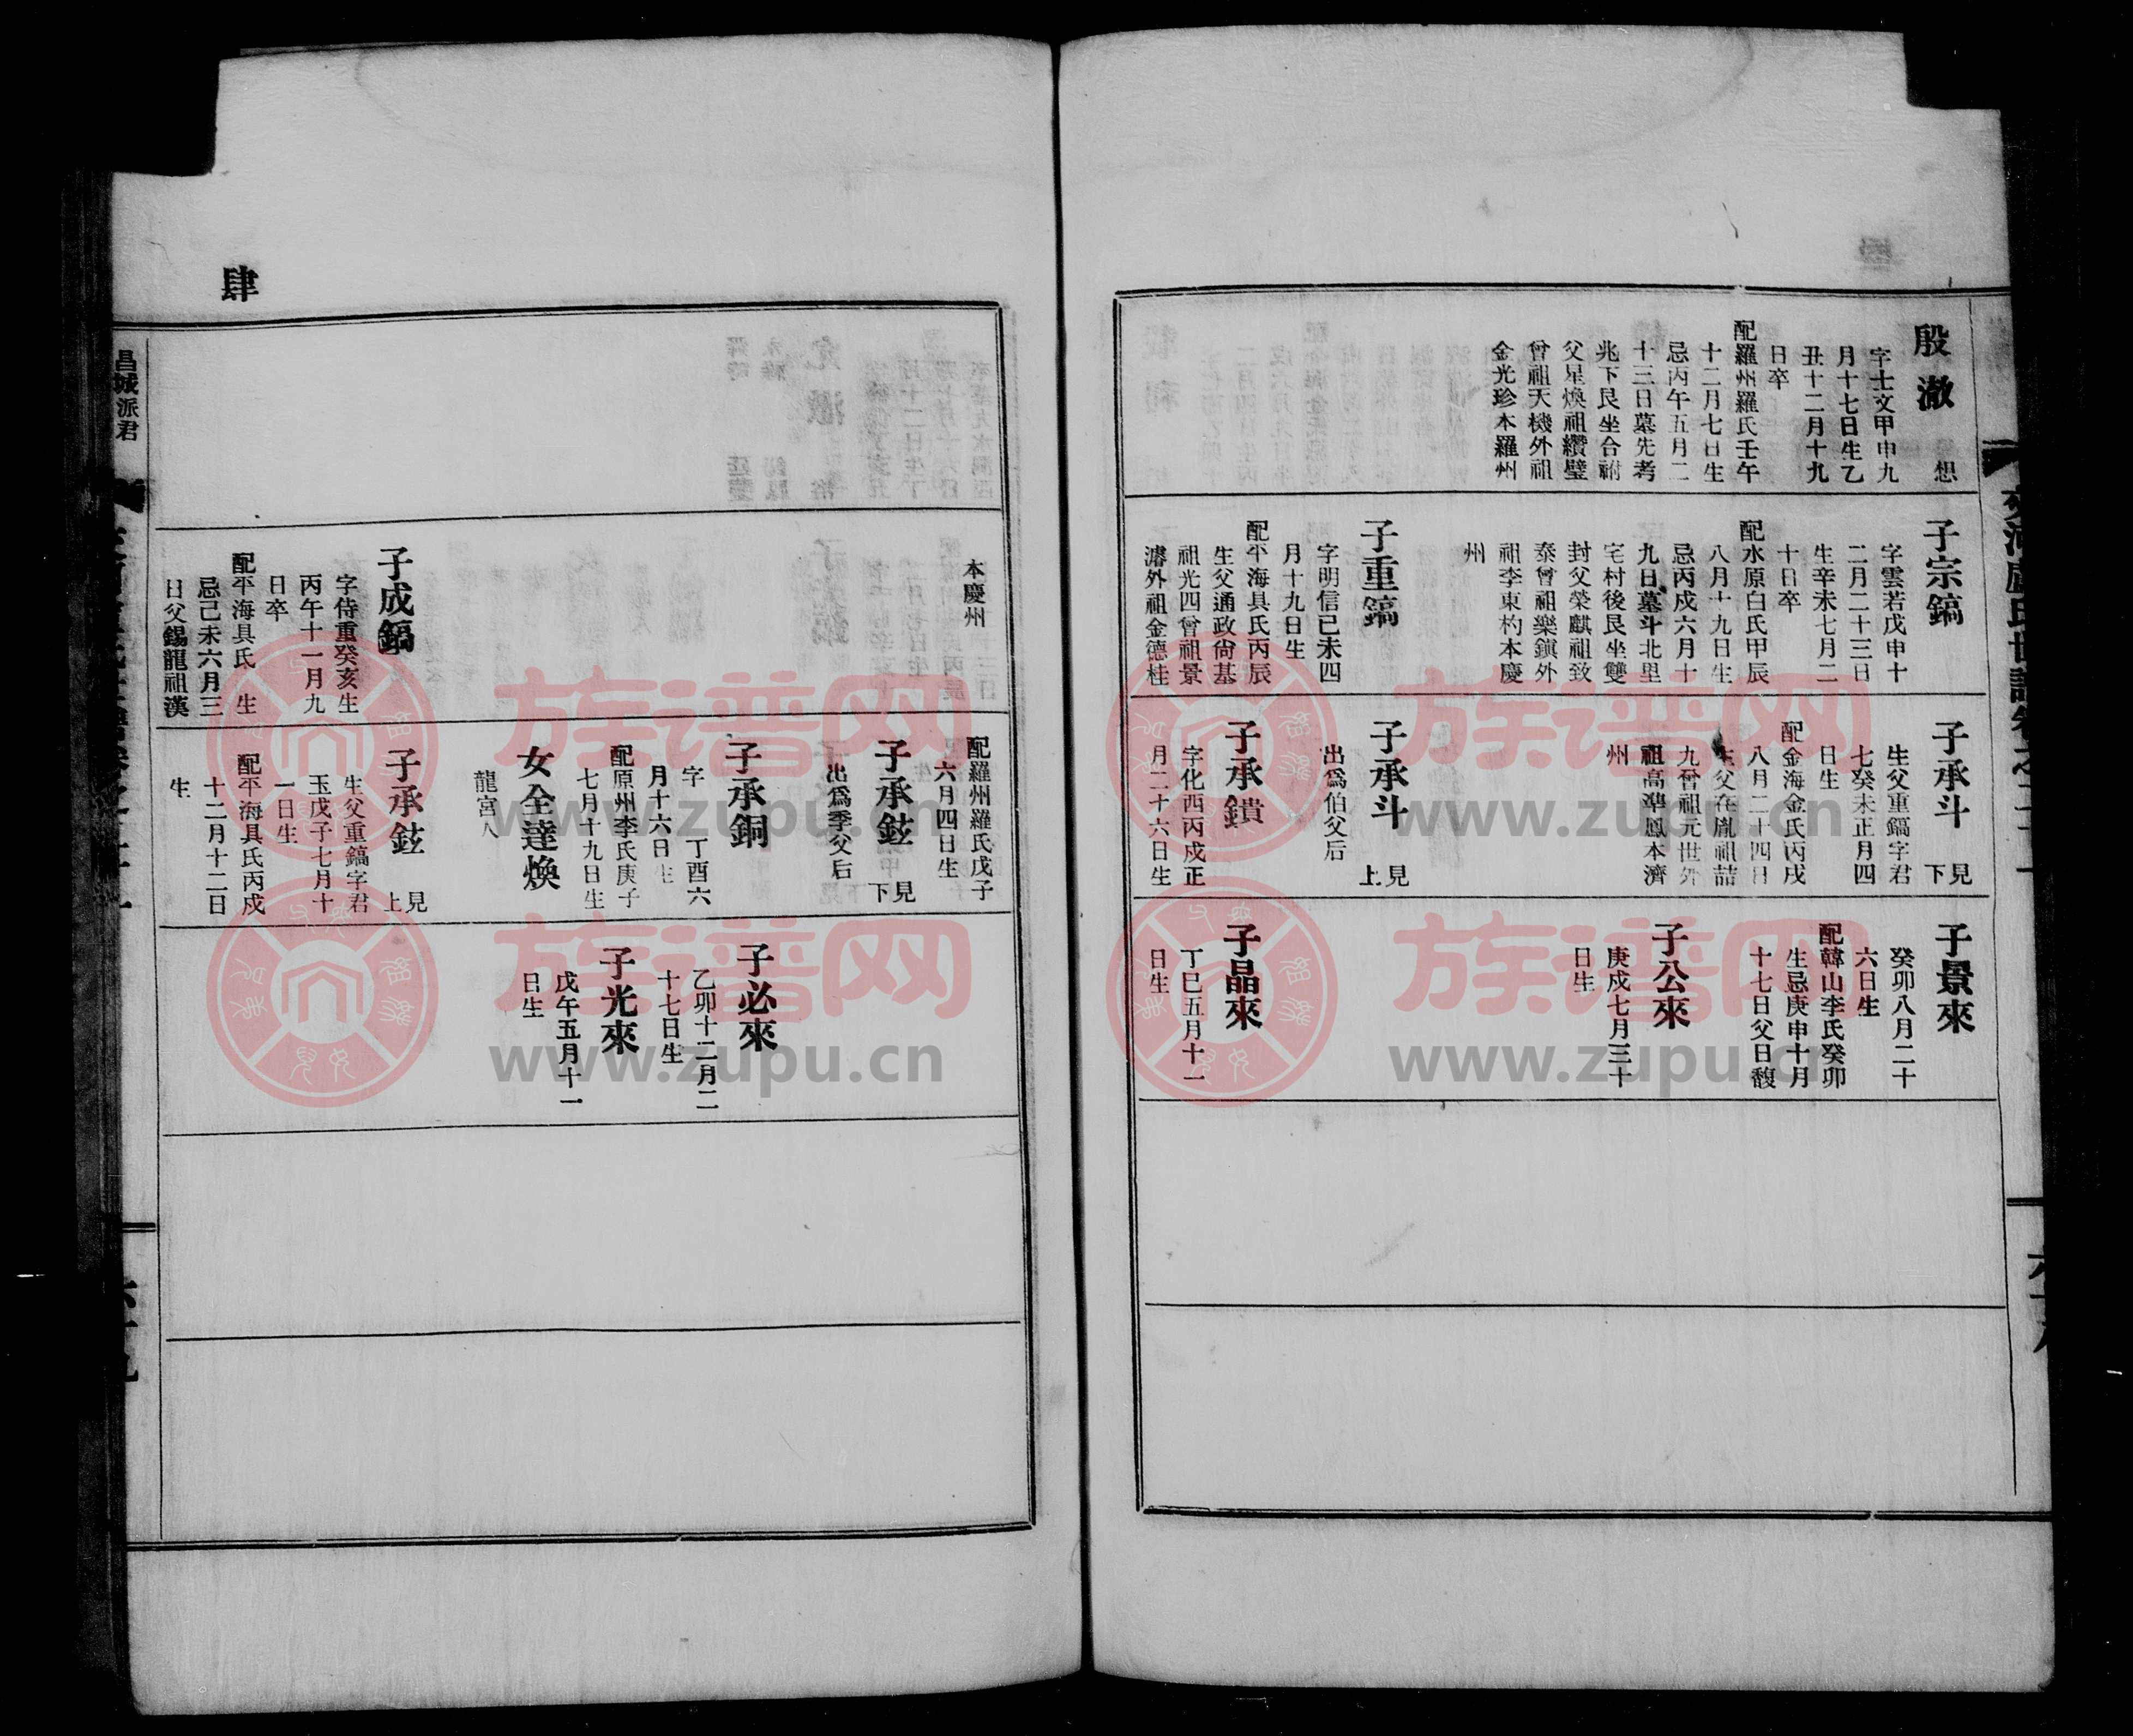 殷澈
想
字士文甲申九
月十七日生乙
丑十二月十九
日卒
配羅州羅氏壬午
十二月七日生
忌丙午五月二
十三日墓先考
兆下艮坐合祔
父星煥祖纘璧
曾祖天機外祖
金光珍本羅州
子宗鎬
字雲若戊申十
二月二十三日
生辛未七月二
十日卒
配水原白氏甲辰
八月十九日生
忌丙戌六月十
九日墓斗北里
宅村後艮坐雙
封父榮麒祖致
泰曾祖樂鎭外
祖李東杓本慶
州
子重鎬
字明信己未四
月十九日生
配平海具氏丙辰
生父通政尙基
祖光四曾祖景
濬外祖金德桂
子承斗
見下
生父重鎬字君
七癸未正月四
日生
配金海金氏丙戌
八月二十四日
生父在胤祖喆
九曾祖元世外
祖高準鳳本濟
州
子承斗
見上
出爲伯父后
子承鐀
字化西丙戌正
月二十六日生
子景來
癸卯八月二十
六日生
配韓山李氏癸卯
生忌庚申十月
十七日父日馥
子公來
庚戌七月三十
日生
子品來
丁巳五月十一
日生
肆
昌城派君
本慶州
子成鎬
字侍重癸亥生
丙午十一月九
日卒
配平海具氏 生
忌己未六月三
日父錫龍祖漢
配羅州羅氏戊子
六月四日生
子承鉉
見下
出爲季父后
子承銅
字 丁酉六
月十六日生
配原州李氏庚子
七月十九日生
女全達煥
龍宮人
子承鉉
見上
生父重鎬字君
玉戊子七月十
一日生
配平海具氏丙戌
十二月十二日
生
子必來
乙卯十二月二
十七日生
子光來
戊午五月十一
日生
族谱网
www.zupu.cn
族谱网
www.zupu.cn
族谱网
www.zupu.cn
族谱网
www.zupu.cn